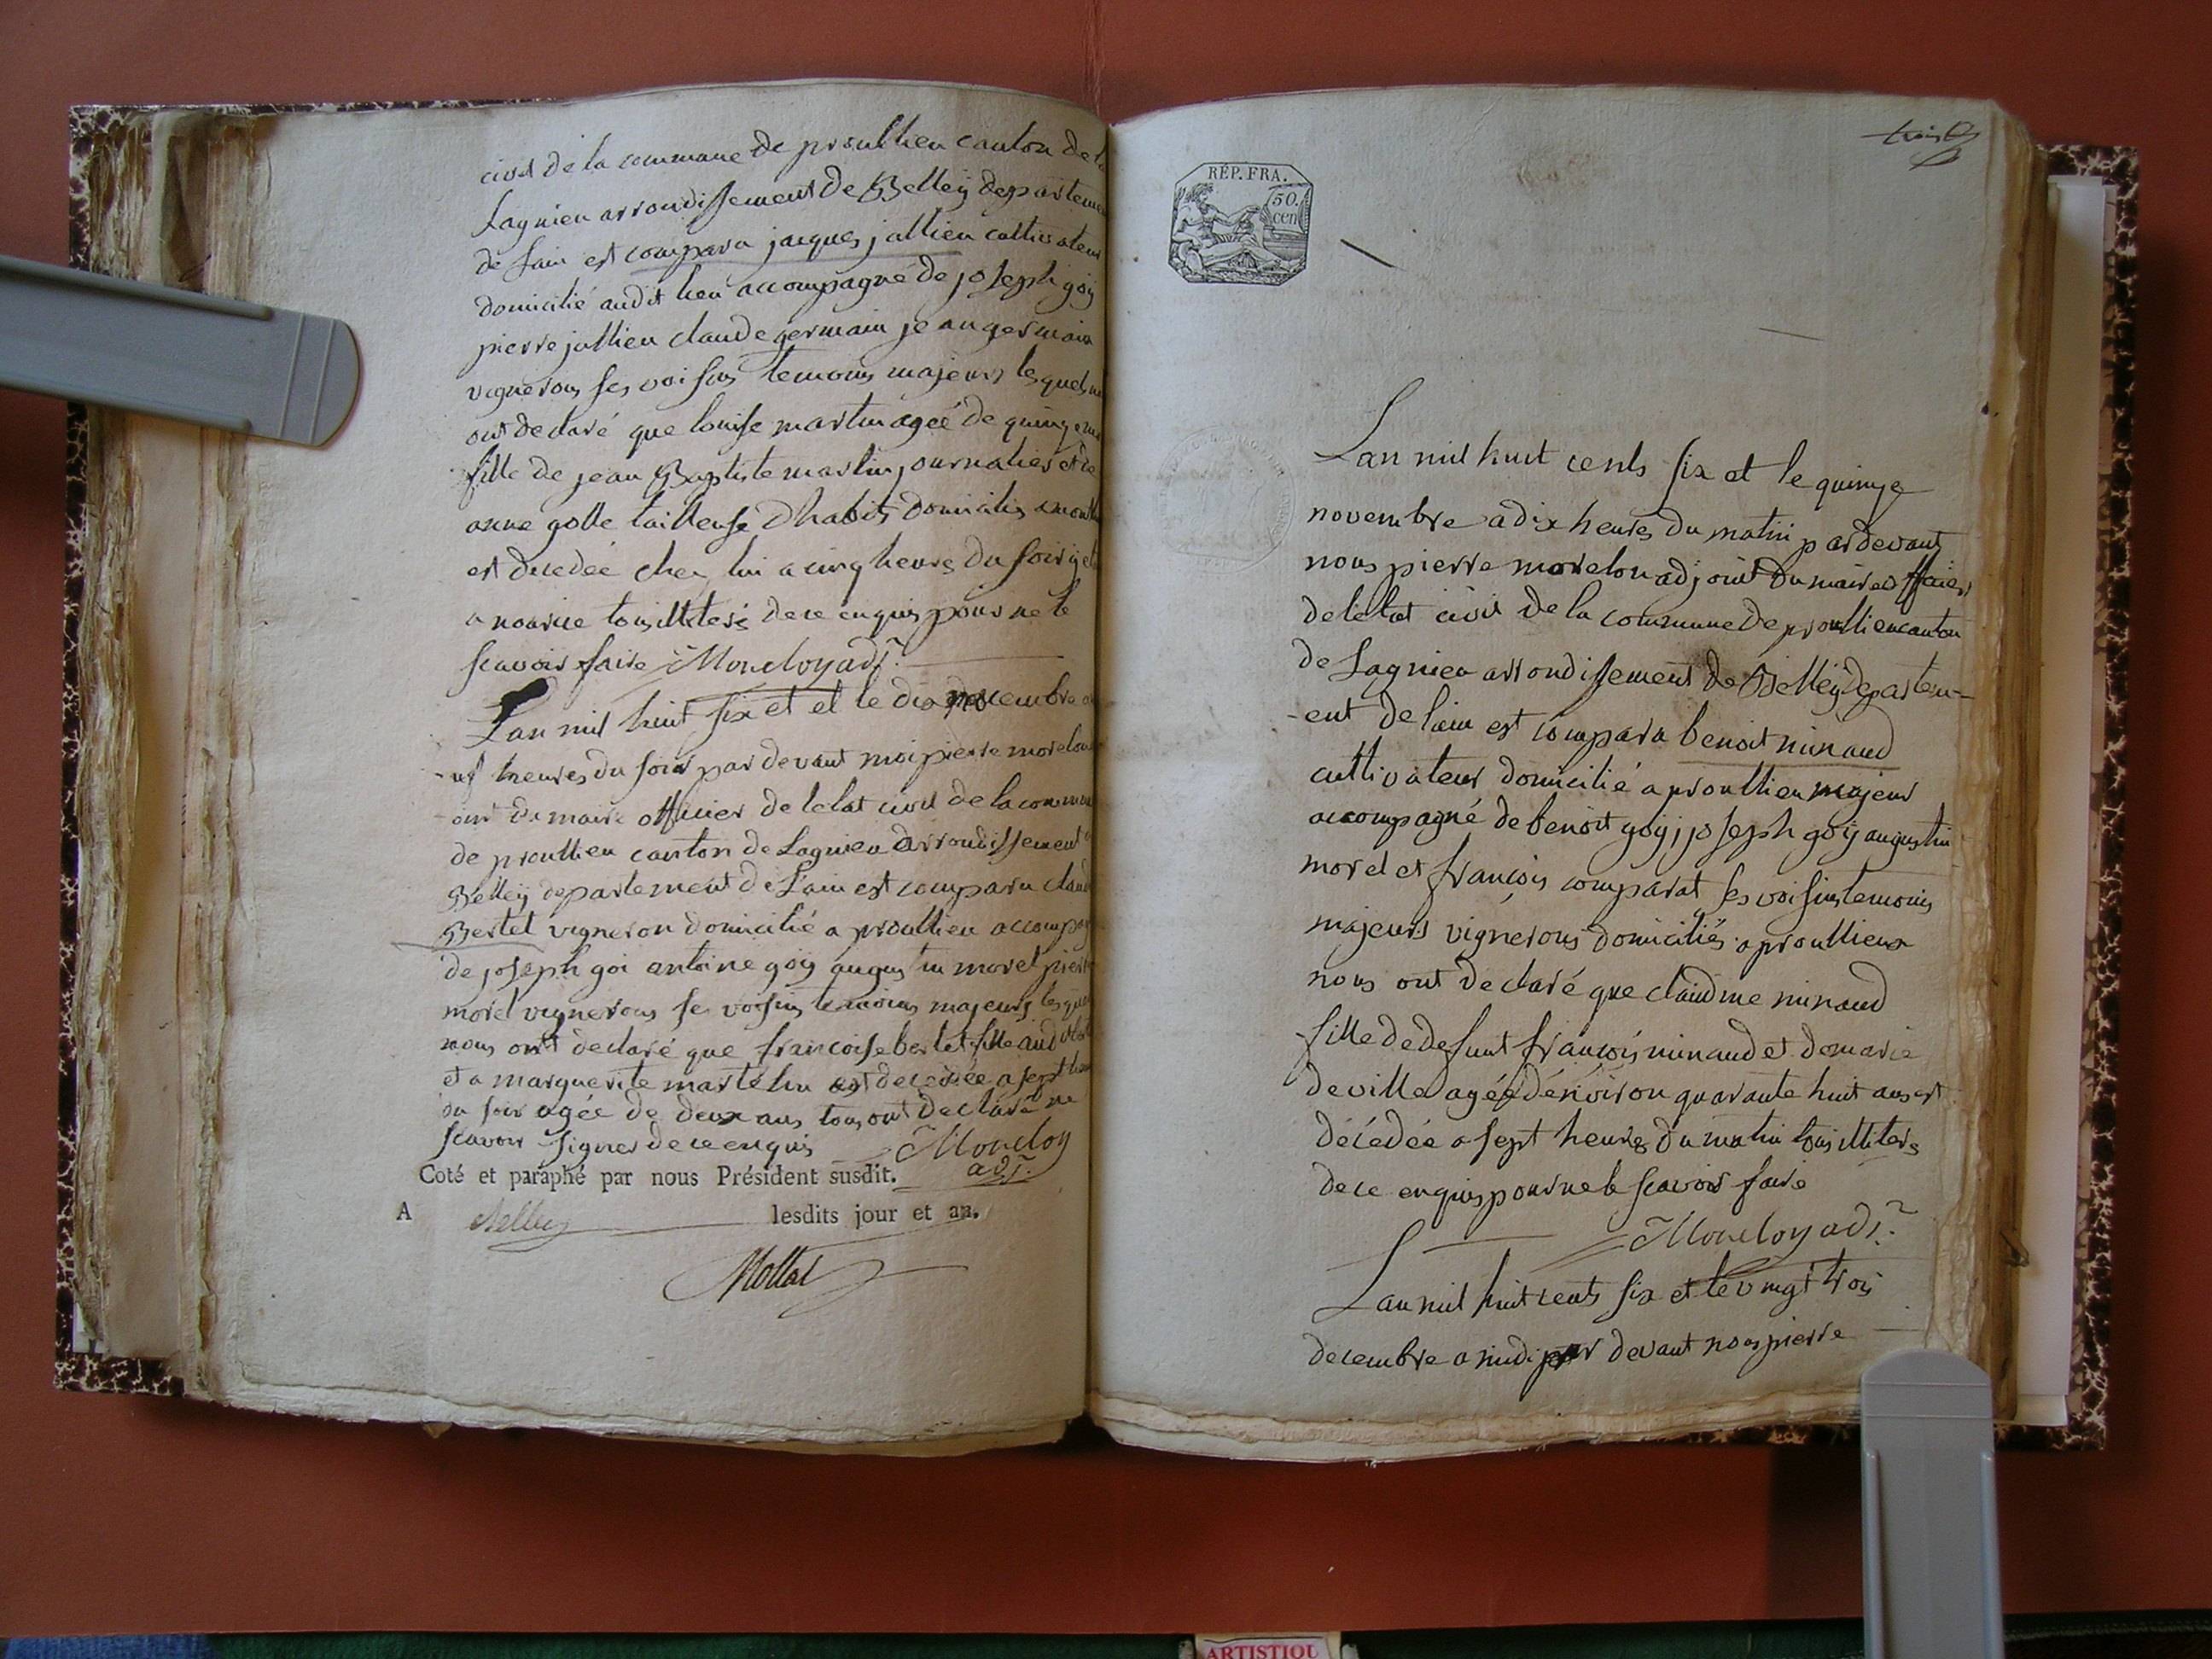 civil de la commune de proullieu canton de
Lagnieu arrondissement de Belleÿ departeme
de lain est comparu jacques jullien cultivateur
domicilié audit lieu accompagné de joseph goÿ
pierre jullien claude germain jean germain
vignerons ses voisins temoins majeurs lesquels
ont declaré que louise martin agéé de quinze
fille de jean Baptiste martin journalier et de
anne golle tailleuse dhabits domiciliés
est decedée chez lui a cinq heures du soir
a nourice tous illiteré de ce enquis pour ne le
scavoir faire Moreloy adj.t
Lan mil huit six et et le dix novembre
uf heures du soir par devant moi pierre morelon
oint du maire officier de letat civil de la commun
de proullieu canton de Lagnieu arrondissement
Belleÿ departement de Lain est comparu claud
Bertet vigneron domicilié a proullieu accompag
de joseph goi antoine goÿ augustin morel pierre
morel vignerons se voisins temoins majeurs lesquel
nous ont declaré que francoise bertet fille audit
et a marguerite martelin est decedée a sept heu
du soir agée de deux ans tous ont declaré ne
scavoir signer de ce enquis Moreloy
adj.t
Coté et paraphé par nous Président susdit.
A Belley lesdits jour et an.
Mollat
RÉP. FRA.
50.
cen
Lan mil huit cents six et le quinze
novembre a dix heures du matin par devant
nous pierre morelon adjoint du maire officier
de letat civil de la commune de proullieu canton
de Lagnieu arrondissement de Belleÿ departem-
-ent de lain est comparu benoit minaud
cultivateur domicilié a proullieu majeur
accompagné de benoit goÿ, joseph goÿ augustin
morel et francois comparat ses voisins temoins
majeurs vignerons domiciliés a proullieu
nous ont declaré que claudine minaud
fille de defunt françois minaud et de marie
deville agéé dénviron quarante huit ans est
décédée a sept heures du matin tous illiteré
de ce enquis pour ne le scavoir faire
Moreloy adj.t
Lan mil huit cents six et le vingt trois
decembre a midi par devant nous pierre
ARTISTIQU